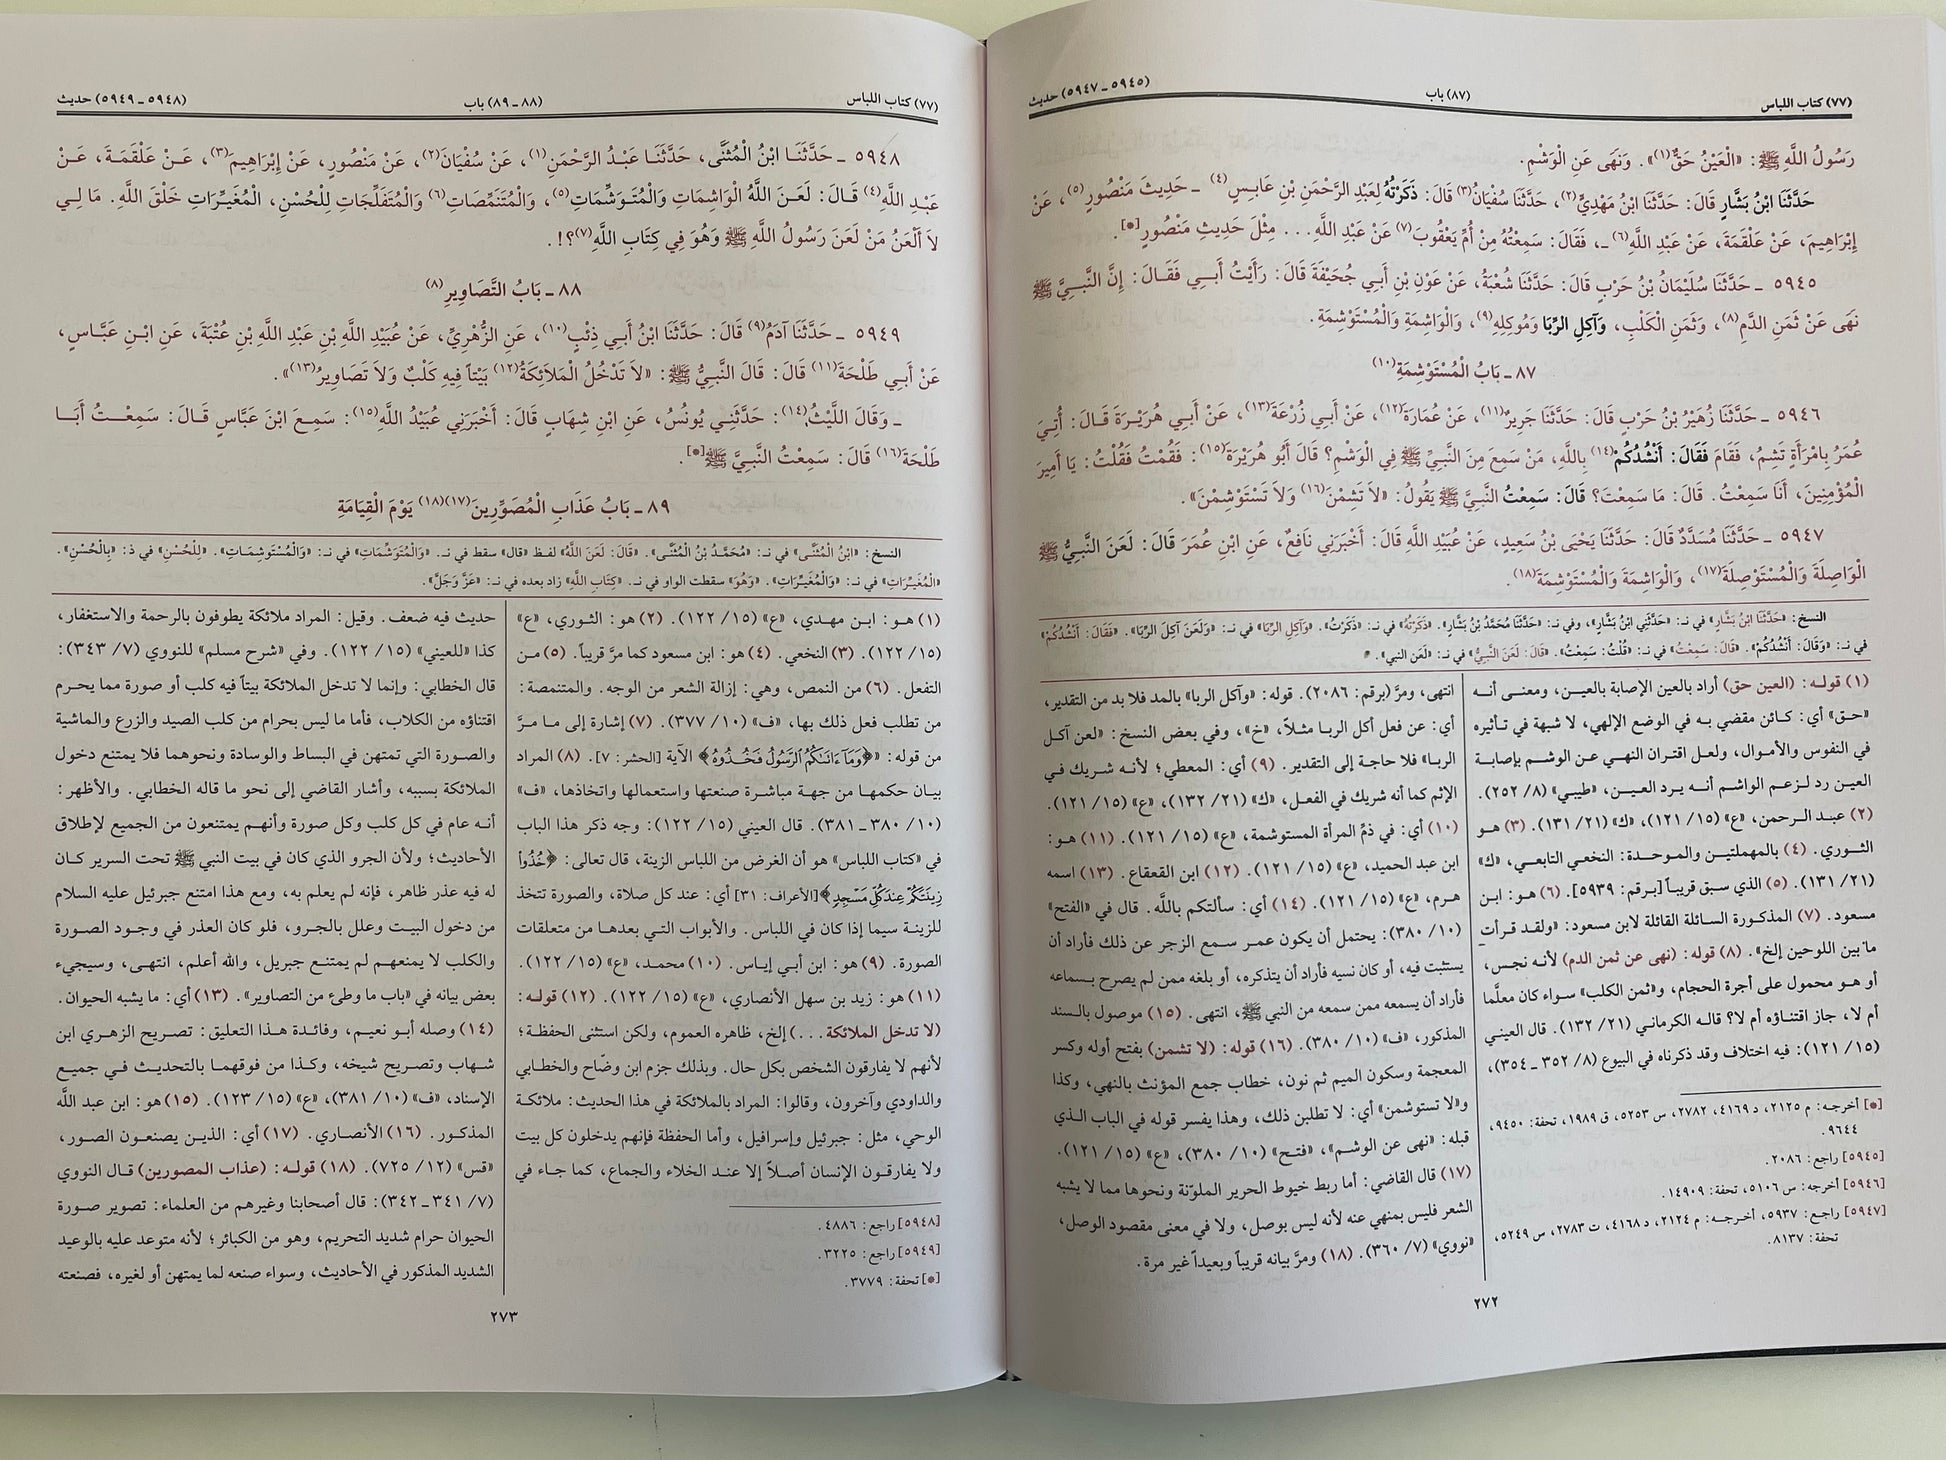 (٧٧) كتاب اللباس (٨٧) باب (٥٩٤٥ ـ ٥٩٤٧) حديث
رَسُولُ اللَّهِ ﷺ: «الْعَيْنُ حَقٌّ(١)». وَنَهَى عَنِ الْوَشْمِ.
حَدَّثَنَا ابْنُ بَشَّارٍ قَالَ: حَدَّثَنَا ابْنُ مَهْدِيٍّ(٢)، حَدَّثَنَا سُفْيَانُ(٣) قَالَ: ذَكَرْتُهُ لِعَبْدِ الرَّحْمَنِ بْنِ عَابِسٍ(٤) ـ حَدِيثَ مَنْصُورٍ(٥)، عَنْ
إِبْرَاهِيمَ، عَنْ عَلْقَمَةَ، عَنْ عَبْدِ اللَّهِ(٦) ـ، فَقَالَ: سَمِعْتُهُ مِنْ أُمِّ يَعْقُوبَ(٧) عَنْ عَبْدِ اللَّهِ... مِثْلَ حَدِيثِ مَنْصُورٍ[*].
٥٩٤٥ ـ حَدَّثَنَا سُلَيْمَانُ بْنُ حَرْبٍ قَالَ: حَدَّثَنَا شُعْبَةُ، عَنْ عَوْنِ بْنِ أَبِي جُحَيْفَةَ قَالَ: رَأَيْتُ أَبِي فَقَالَ: إِنَّ النَّبِيَّ ﷺ
نَهَى عَنْ ثَمَنِ الدَّمِ(٨)، وَثَمَنِ الْكَلْبِ، وَآكِلِ الرِّبَا وَمُوكِلِهِ(٩)، وَالْوَاشِمَةِ وَالْمُسْتَوْشِمَةِ.
٨٧ ـ بَابُ الْمُسْتَوْشِمَةِ(١٠)
٥٩٤٦ ـ حَدَّثَنَا زُهَيْرُ بْنُ حَرْبٍ قَالَ: حَدَّثَنَا جَرِيرٌ(١١)، عَنْ عُمَارَةَ(١٢)، عَنْ أَبِي زُرْعَةَ(١٣)، عَنْ أَبِي هُرَيْرَةَ قَالَ: أُتِيَ
عُمَرُ بِامْرَأَةٍ تَشِمُ، فَقَامَ فَقَالَ: أَنْشُدُكُمْ(١٤) بِاللَّهِ، مَنْ سَمِعَ مِنَ النَّبِيِّ ﷺ فِي الْوَشْمِ؟ قَالَ أَبُو هُرَيْرَةَ(١٥): فَقُمْتُ فَقُلْتُ: يَا أَمِيرَ
الْمُؤْمِنِينَ، أَنَا سَمِعْتُ. قَالَ: مَا سَمِعْتَ؟ قَالَ: سَمِعْتُ النَّبِيَّ ﷺ يَقُولُ: «لاَ تَشِمْنَ(١٦) وَلاَ تَسْتَوْشِمْنَ».
٥٩٤٧ ـ حَدَّثَنَا مُسَدَّدٌ قَالَ: حَدَّثَنَا يَحْيَى بْنُ سَعِيدٍ، عَنْ عُبَيْدِ اللَّهِ قَالَ: أَخْبَرَنِي نَافِعٌ، عَنِ ابْنِ عُمَرَ قَالَ: لَعَنَ النَّبِيُّ ﷺ
الْوَاصِلَةَ وَالْمُسْتَوْصِلَةَ(١٧)، وَالْوَاشِمَةَ وَالْمُسْتَوْشِمَةَ(١٨).
النسخ: «حَدَّثَنَا ابْنُ بَشَّارٍ» في نـ: «حَدَّثَنِي ابْنُ بَشَّارٍ»، وفي نـ: «حَدَّثَنَا مُحَمَّدُ بْنُ بَشَّارٍ». «ذَكَرْتُهُ» في نـ: «ذَكَرْتُ». «وَآكِلِ الرِّبَا» في نـ: «وَلَعَنَ آكِلَ الرِّبَا». «فَقَالَ: أَنْشُدُكُمْ»
في نـ: «وَقَالَ: أَنْشُدُكُمْ». «قَالَ: سَمِعْتُ» في نـ: «قُلْتُ: سَمِعْتُ». «قَالَ: لَعَنَ النَّبِيُّ» في نـ: «لَعَنَ النبي».
(١) قوله: (العين حق) أراد بالعين الإصابة بالعين، ومعنى أنه
«حق» أي: كائن مقضي به في الوضع الإلهي، لا شبهة في تأثيره
في النفوس والأموال، ولعل اقتران النهي عن الوشم بإصابة
العين رد لزعم الواشم أنه يرد العين، «طيبي» (٨/ ٢٥٢).
(٢) عبد الرحمن، «ع» (١٥/ ١٢١)، «ك» (٢١/ ١٣١). (٣) هو
الثوري. (٤) بالمهملتين والموحدة: النخعي التابعي، «ك»
(٢١/ ١٣١). (٥) الذي سبق قريباً [برقم: ٥٩٣٩]. (٦) هو: ابن
مسعود. (٧) المذكورة السائلة القائلة لابن مسعود: «ولقد قرأت
ما بين اللوحين إلخ». (٨) قوله: (نهى عن ثمن الدم) لأنه نجس،
أو هو محمول على أجرة الحجام، و«ثمن الكلب» سواء كان معلَّما
أم لا، جاز اقتناؤه أم لا؟ قاله الكرماني (٢١/ ١٣٢). قال العيني
(١٥/ ١٢١): فيه اختلاف وقد ذكرناه في البيوع (٨/ ٣٥٢ ـ ٣٥٤)،
[*] أخرجه: م ٢١٢٥، د ٤١٦٩، ٢٧٨٢، س ٥٢٥٣، ق ١٩٨٩، تحفة: ٩٤٥٠،
٩٦٤٤.
[٥٩٤٥] راجع: ٢٠٨٦.
[٥٩٤٦] أخرجه: س ٥١٠٦، تحفة: ١٤٩٠٩.
[٥٩٤٧] راجع: ٥٩٣٧، أخرجه: م ٢١٢٤، د ٤١٦٨، ت ٢٧٨٣، س ٥٢٤٩،
تحفة: ٨١٣٧.
انتهى، ومرَّ (برقم: ٢٠٨٦). قوله: «وآكل الربا» بالمد فلا بد من التقدير،
أي: عن فعل أكل الربا مثلاً، «خ»، وفي بعض النسخ: «لعن آكل
الربا» فلا حاجة إلى التقدير. (٩) أي: المعطي؛ لأنه شريك في
الإثم كما أنه شريك في الفعل، «ك» (٢١/ ١٣٢)، «ع» (١٥/ ١٢١).
(١٠) أي: في ذمِّ المرأة المستوشمة، «ع» (١٥/ ١٢١). (١١) هو:
ابن عبد الحميد، «ع» (١٥/ ١٢١). (١٢) ابن القعقاع. (١٣) اسمه
هرم، «ع» (١٥/ ١٢١). (١٤) أي: سألتكم باللّه. قال في «الفتح»
(١٠/ ٣٨٠): يحتمل أن يكون عمر سمع الزجر عن ذلك فأراد أن
يستثبت فيه، أو كان نسيه فأراد أن يتذكره، أو بلغه ممن لم يصرح بسماعه
فأراد أن يسمعه ممن سمعه من النبي ﷺ، انتهى. (١٥) موصول بالسند
المذكور، «ف» (١٠/ ٣٨٠). (١٦) قوله: (لا تشمن) بفتح أوله وكسر
المعجمة وسكون الميم ثم نون، خطاب جمع المؤنث بالنهي، وكذا
و«لا تستوشمن» أي: لا تطلبن ذلك، وهذا يفسر قوله في الباب الذي
قبله: «نهى عن الوشم»، «فتح» (١٠/ ٣٨٠)، «ع» (١٥/ ١٢١).
(١٧) قال القاضي: أما ربط خيوط الحرير الملوّنة ونحوها مما لا يشبه
الشعر فليس بمنهي عنه لأنه ليس بوصل، ولا في معنى مقصود الوصل،
«نووي» (٧/ ٣٦٠). (١٨) ومرَّ بيانه قريباً وبعيداً غير مرة.
٢٧٢
(٧٧) كتاب اللباس (٨٨ ـ ٨٩) باب (٥٩٤٨ ـ ٥٩٤٩) حديث
٥٩٤٨ ـ حَدَّثَنَا ابْنُ الْمُثَنَّى، حَدَّثَنَا عَبْدُ الرَّحْمَنِ(١)، عَنْ سُفْيَانَ(٢)، عَنْ مَنْصُورٍ، عَنْ إِبْرَاهِيمَ(٣)، عَنْ عَلْقَمَةَ، عَنْ
عَبْدِ اللَّهِ(٤) قَالَ: لَعَنَ اللَّهُ الْوَاشِمَاتِ وَالْمُتَوَشِّمَاتِ(٥)، وَالْمُتَنَمِّصَاتِ(٦) وَالْمُتَفَلِّجَاتِ لِلْحُسْنِ، الْمُغَيِّرَاتِ خَلْقَ اللَّهِ. مَا لِي
لاَ أَلْعَنُ مَنْ لَعَنَ رَسُولُ اللَّهِ ﷺ وَهُوَ فِي كِتَابِ اللَّهِ(٧)؟!.
٨٨ ـ بَابُ التَّصَاوِيرِ(٨)
٥٩٤٩ ـ حَدَّثَنَا آدَمُ(٩) قَالَ: حَدَّثَنَا ابْنُ أَبِي ذِئْبٍ(١٠)، عَنِ الزُّهْرِيِّ، عَنْ عُبَيْدِ اللَّهِ بْنِ عَبْدِ اللَّهِ بْنِ عُتْبَةَ، عَنِ ابْنِ عَبَّاسٍ،
عَنْ أَبِي طَلْحَةَ(١١) قَالَ: قَالَ النَّبِيُّ ﷺ: «لاَ تَدْخُلُ الْمَلاَئِكَةُ(١٢) بَيْتاً فِيهِ كَلْبٌ وَلاَ تَصَاوِيرُ(١٣)».
ـ وَقَالَ اللَّيْثُ(١٤): حَدَّثَنِي يُونُسُ، عَنِ ابْنِ شِهَابٍ قَالَ: أَخْبَرَنِي عُبَيْدُ اللَّهِ(١٥): سَمِعَ ابْنَ عَبَّاسٍ قَالَ: سَمِعْتُ أَبَا
طَلْحَةَ(١٦) قَالَ: سَمِعْتُ النَّبِيَّ ﷺ[*].
٨٩ ـ بَابُ عَذَابِ الْمُصَوِّرِينَ(١٧)(١٨) يَوْمَ الْقِيَامَةِ
النسخ: «ابْنُ الْمُثَنَّى» في نـ: «مُحَمَّدُ بْنُ الْمُثَنَّى». «قَالَ: لَعَنَ اللَّهُ» لفظ «قال» سقط في نـ. «وَالْمُتَوَشِّمَاتِ» في نـ: «وَالْمُسْتَوشِمَاتِ». «لِلْحُسْنِ» في ذ: «بِالْحُسْنِ».
«الْمُغَيِّرَاتِ» في نـ: «وَالْمُغَيِّرَاتِ». «وَهُوَ» سقطت الواو في نـ. «كِتَابِ اللَّهِ» زاد بعده في نـ: «عَزَّ وَجَلَّ».
(١) هو: ابن مهدي، «ع» (١٥/ ١٢٢). (٢) هو: الثوري، «ع»
(١٥/ ١٢٢). (٣) النخعي. (٤) هو: ابن مسعود كما مرَّ قريباً. (٥) من
التفعل. (٦) من النمص، وهي: إزالة الشعر من الوجه. والمتنمصة:
من تطلب فعل ذلك بها، «ف» (١٠/ ٣٧٧). (٧) إشارة إلى ما مرَّ
من قوله: «﴿وَمَآ ءَاتَىٰكُمُ ٱلرَّسُولُ فَخُذُوهُ﴾ الآية [الحشر: ٧]. (٨) المراد
بيان حكمها من جهة مباشرة صنعتها واستعمالها واتخاذها، «ف»
(١٠/ ٣٨٠ ـ ٣٨١). قال العيني (١٥/ ١٢٢): وجه ذكر هذا الباب
في «كتاب اللباس» هو أن الغرض من اللباس الزينة، قال تعالى: ﴿خُذُواْ
زِينَتَكُمۡ عِندَ كُلِّ مَسۡجِدٖ﴾ [الأعراف: ٣١] أي: عند كل صلاة، والصورة تتخذ
للزينة سيما إذا كان في اللباس. والأبواب التي بعدها من متعلقات
الصورة. (٩) هو: ابن أبي إياس. (١٠) محمد، «ع» (١٥/ ١٢٢).
(١١) هو: زيد بن سهل الأنصاري، «ع» (١٥/ ١٢٢). (١٢) قوله:
(لا تدخل الملائكة...) إلخ، ظاهره العموم، ولكن استثنى الحفظة؛
لأنهم لا يفارقون الشخص بكل حال. وبذلك جزم ابن وضّاح والخطابي
والداودي وآخرون، وقالوا: المراد بالملائكة في هذا الحديث: ملائكة
الوحي، مثل: جبرئيل وإسرافيل، وأما الحفظة فإنهم يدخلون كل بيت
ولا يفارقون الإنسان أصلاً إلا عند الخلاء والجماع، كما جاء في
[٥٩٤٨] راجع: ٤٨٨٦.
[٥٩٤٩] راجع: ٣٢٢٥.
[*] تحفة: ٣٧٧٩.
حديث فيه ضعف. وقيل: المراد ملائكة يطوفون بالرحمة والاستغفار،
كذا «للعيني» (١٥/ ١٢٢). وفي «شرح مسلم» للنووي (٧/ ٣٤٣):
قال الخطابي: وإنما لا تدخل الملائكة بيتاً فيه كلب أو صورة مما يحرم
اقتناؤه من الكلاب، فأما ما ليس بحرام من كلب الصيد والزرع والماشية
والصورة التي تمتهن في البساط والوسادة ونحوهما فلا يمتنع دخول
الملائكة بسببه، وأشار القاضي إلى نحو ما قاله الخطابي. والأظهر:
أنه عام في كل كلب وكل صورة وأنهم يمتنعون من الجميع لإطلاق
الأحاديث؛ ولأن الجرو الذي كان في بيت النبي ﷺ تحت السرير كان
له فيه عذر ظاهر، فإنه لم يعلم به، ومع هذا امتنع جبرئيل عليه السلام
من دخول البيت وعلل بالجرو، فلو كان العذر في وجود الصورة
والكلب لا يمنعهم لم يمتنع جبريل، والله أعلم، انتهى، وسيجيء
بعض بيانه في «باب ما وطئ من التصاوير». (١٣) أي: ما يشبه الحيوان.
(١٤) وصله أبو نعيم، وفائدة هذا التعليق: تصريح الزهري ابن
شهاب وتصريح شيخه، وكذا من فوقهما بالتحديث في جميع
الإسناد، «ف» (١٠/ ٣٨١)، «ع» (١٥/ ١٢٣). (١٥) هو: ابن عبد اللّه
المذكور. (١٦) الأنصاري. (١٧) أي: الذين يصنعون الصور،
«قس» (١٢/ ٧٢٥). (١٨) قوله: (عذاب المصورين) قال النووي
(٧/ ٣٤١ ـ ٣٤٢): قال أصحابنا وغيرهم من العلماء: تصوير صورة
الحيوان حرام شديد التحريم، وهو من الكبائر؛ لأنه متوعد عليه بالوعيد
الشديد المذكور في الأحاديث، وسواء صنعه لما يمتهن أو لغيره، فصنعته
٢٧٣